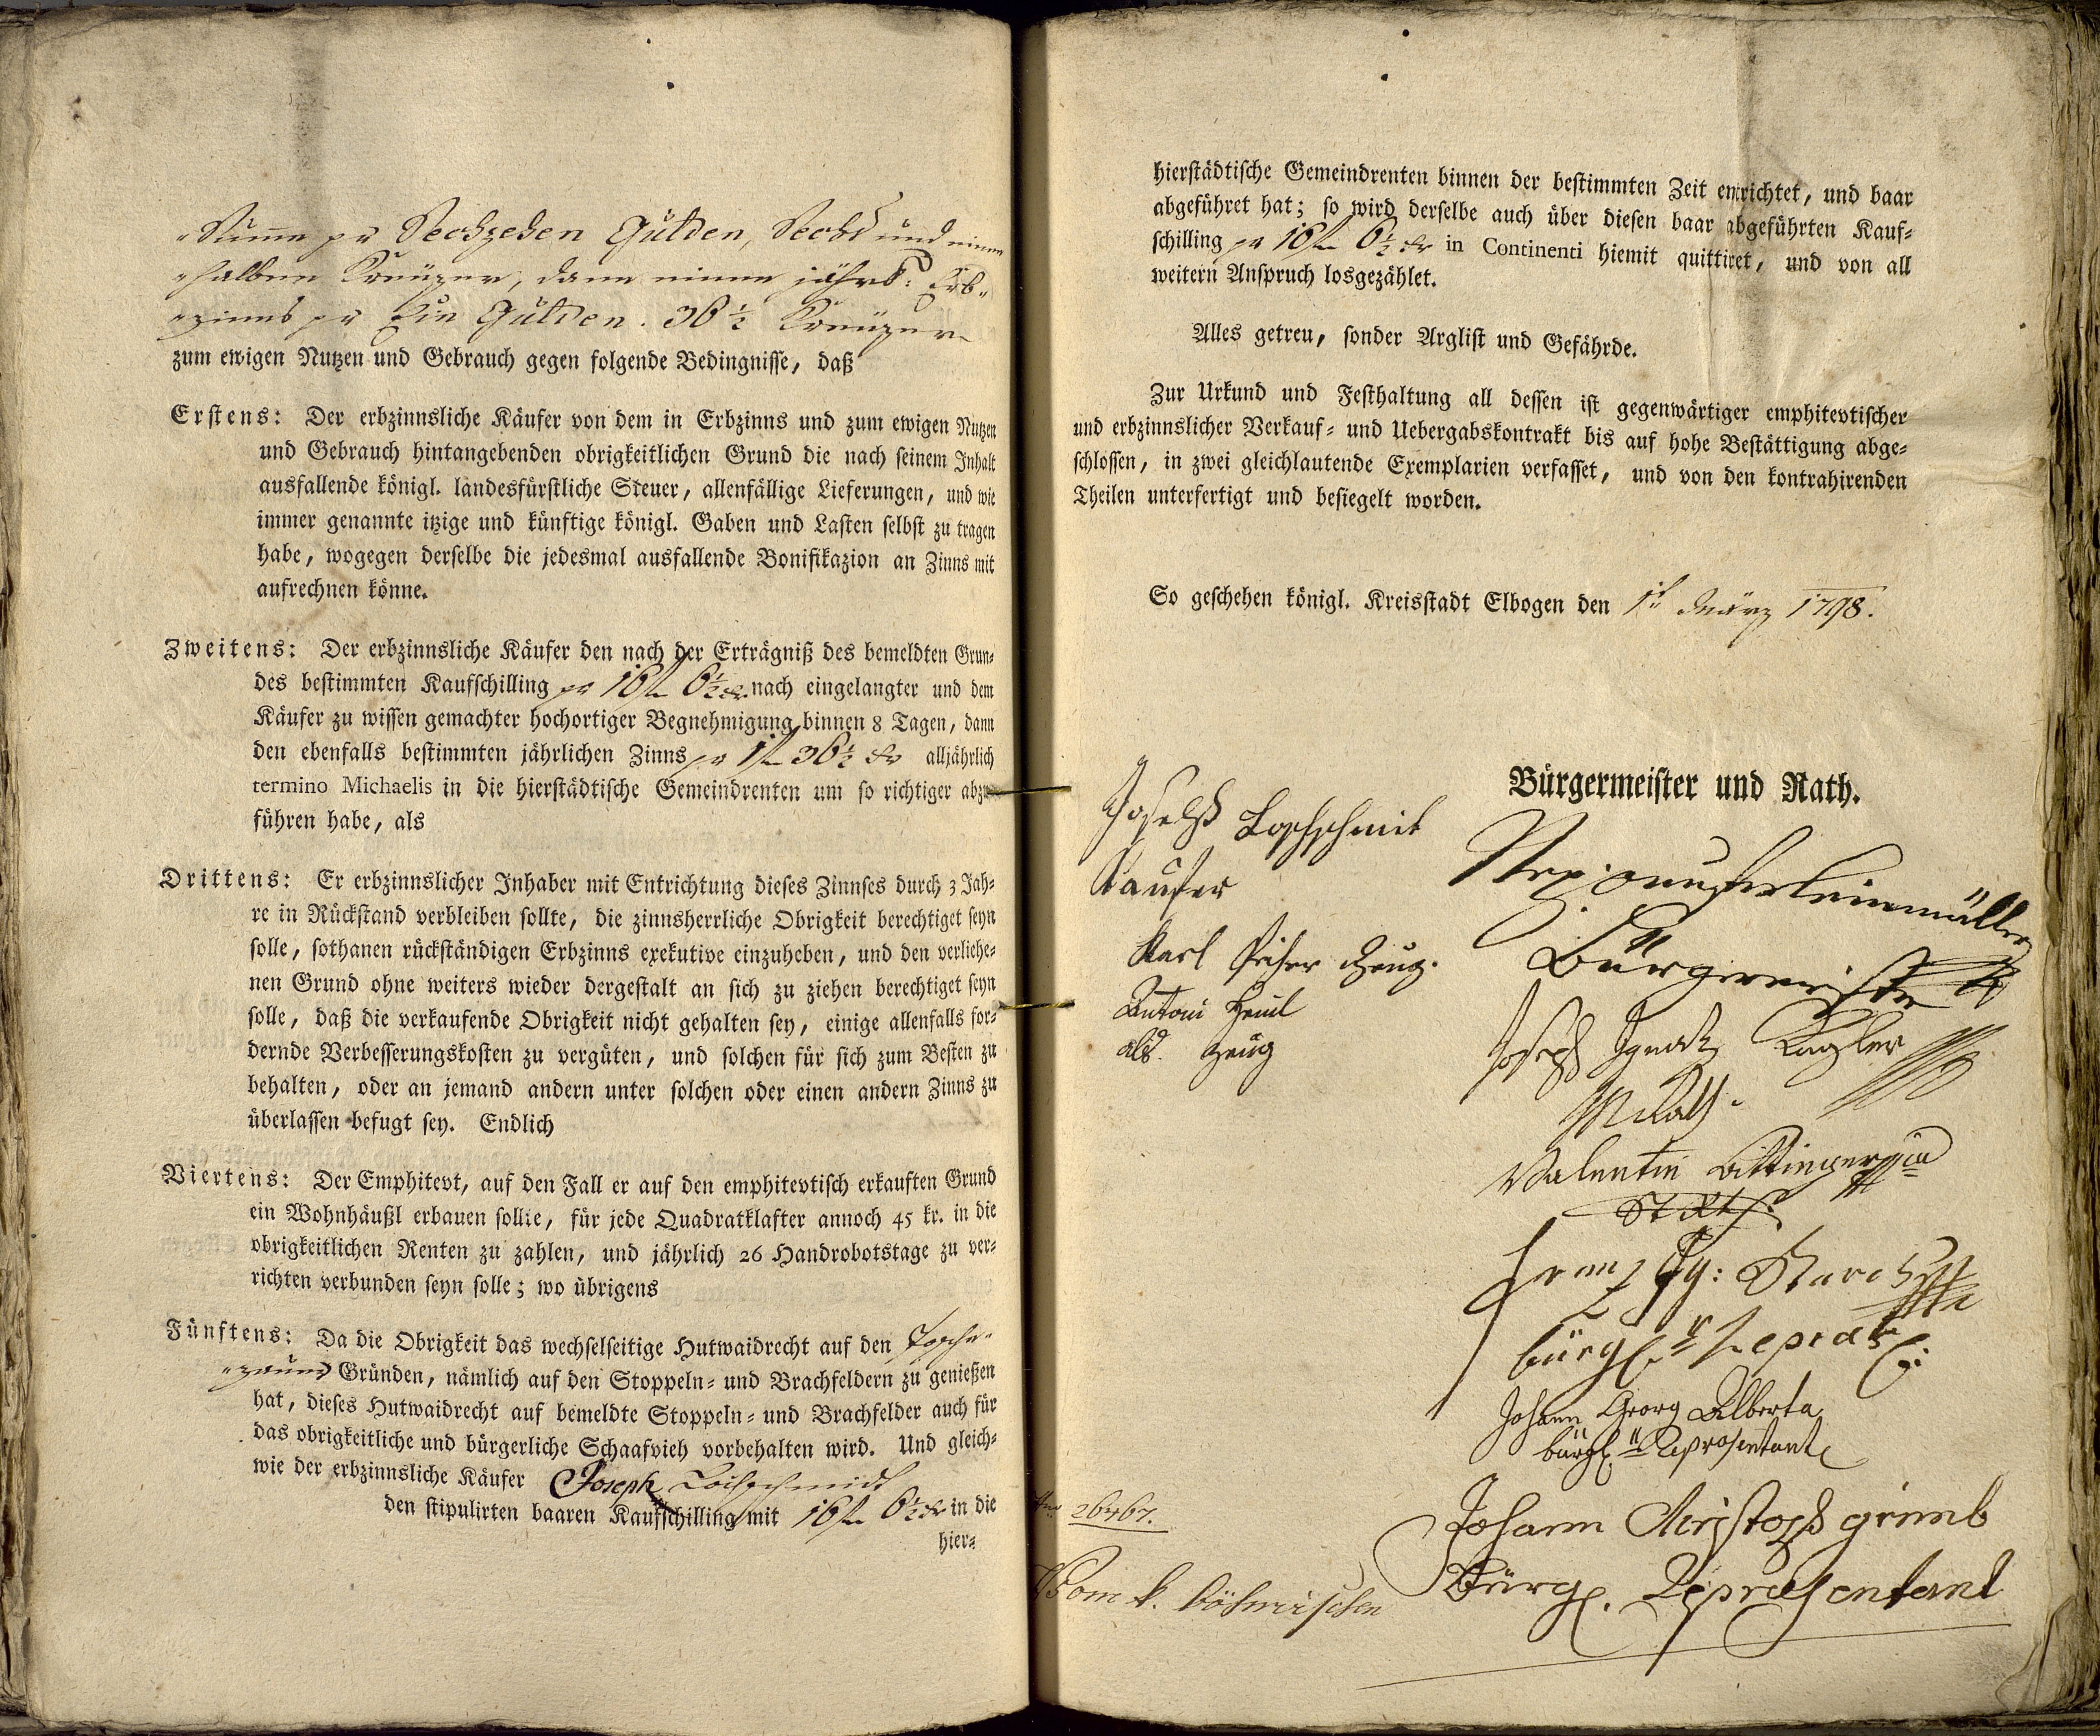 "Summ pr Sechzehen Gulden, Sechs und einen
"halben Kreuzer, dann einen jährl: Erb-
"zinns pr Ein Gulden. 36 1/2 Kreuzer
zum ewigen Nutzen und Gebrauch gegen folgende Bedingnisse, daß
Erstens: Der erbzinnsliche Käufer von dem in Erbzinns und zum ewigen Nutzen
und Gebrauch hintangebenden obrigkeitlichen Grund die nach seinem Inhalt
ausfallende königl. landesfürstliche Steuer, allenfällige Lieferungen, und wie
immer genannte itzige und künftige königl. Gaben und Lasten selbst zu tragen
habe, wogegen derselbe die jedesmal ausfallende Bonifikazion an Zinns mit
aufrechnen könne.
Zweitens: Der erbzinnsliche Käufer den nach der Erträgniß des bemeldten Grun-
des bestimmten Kaufschilling pr 16 f 6 1/2 kr nach eingelangter und dem
Käufer zu wissen gemachter hochortiger Begnehmigung binnen 8 Tagen, dann
den ebenfalls bestimmten jährlichen Zinns pr 1 f 36 1/2 kr alljährlich
termino Michaelis in die hierstädtische Gemeindrenten um so richtiger abzu-
führen habe, als
Drittens: Er erbzinnslicher Inhaber mit Entrichtung dieses Zinnses durch 3 Jah-
re in Rückstand verbleiben sollte, die zinnsherrliche Obrigkeit berechtiget seyn
solle, sothanen rückständigen Erbzinns exekutive einzuheben, und den verliehe-
nen Grund ohne weiters wieder dergestalt an sich zu ziehen berechtiget seyn
solle, daß die verkaufende Obrigkeit nicht gehalten sey, einige allenfalls for-
dernde Verbesserungskosten zu vergüten, und solchen für sich zum Besten zu
behalten, oder an jemand andern unter solchen oder einen andern Zinns zu
überlassen befugt sey. Endlich
Viertens: Der Emphitevt, auf den Fall er auf den emphitevtisch erkauften Grund
ein Wohnhäußl erbauen sollte, für jede Quadratklafter annoch 45 kr. in die
obrigkeitlichen Renten zu zahlen, und jährlich 26 Handrobotstage zu ver-
richten verbunden seyn solle; wo übrigens
Fünftens: Da die Obrigkeit das wechselseitige Hutwaidrecht auf den
Gründen, nämlich auf den Stoppeln- und Brachfeldern zu genießen
hat, dieses Hutwaidrecht auf bemeldte Stoppeln- und Brachfelder auch für
das obrigkeitliche und bürgerliche Schaafvieh vorbehalten wird. Und gleich-
wie der erbzinnsliche Käufer Joseph Lochschmidt
den stipulirten baaren Kaufschilling mit 16 f 6 1/2 kr in die
hier-
hierstädtische Gemeindrenten binnen der bestimmten Zeit entrichtet, und baar
abgeführet hat; so wird derselbe auch über diesen baar abgeführten Kauf-
schilling pr 16 f 6 1/2 kr in Continenti hiemit quittiret, und von all
weitern Anspruch losgezählet.
Alles getreu, sonder Arglist und Gefährde.
Zur Urkund und Festhaltung all dessen ist gegenwärtiger emphitevtischer
und erbzinnslicher Verkauf- und Uebergabskontrakt bis auf hohe Bestättigung abge-
schlossen, in zwei gleichlautende Exemplarien verfasset, und von den kontrahirenden
Theilen unterfertigt und besiegelt worden.
So geschehen königl. Kreisstadt Elbogen den 1t März 1798.
Bürgermeister und Rath.
Joseph Lochschmit
Kaufer
Karl Zeug.
Antoni
als Zeug
Bürgermeister
Joseph Ignatz
MRath
Valentin
Franz Ig:
bürgl. Repräs:
Johann Georg Alberta
bürgl. Reprosentant
Johann Christoph
Bürgl. Repræsentant
26467.
Vom k. böhmischen